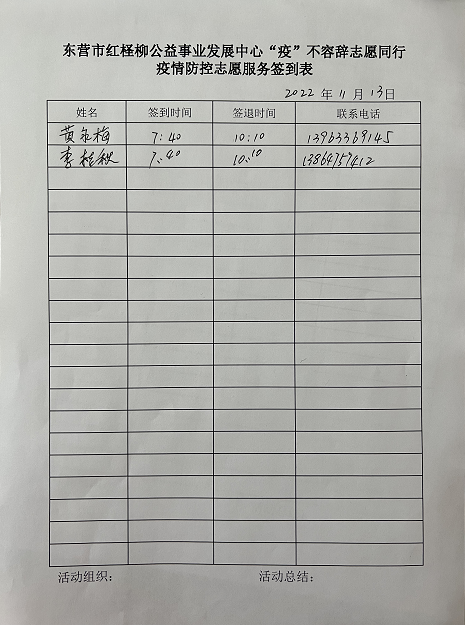 东营市红柽柳公益事业发展中心“疫”不容辞志愿同行
疫情防控志愿服务签到表
2022 年 11 月 13日
姓名 签到时间 签退时间 联系电话
黄 梅 7:40 10:10 13963369145
李桂秋 7:40 10:10 13864757412
活动组织: 活动总结: